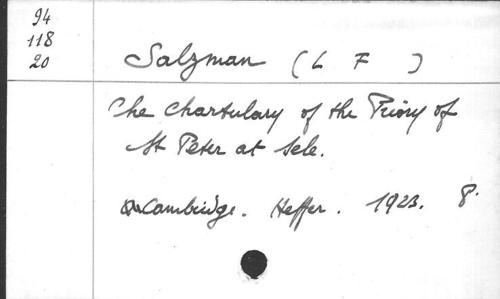 94
118
20
Salzman (L F )
The Chartulary of the Priory of
St Peter at Sele.
Cambridge. Heffer. 1923. 8.